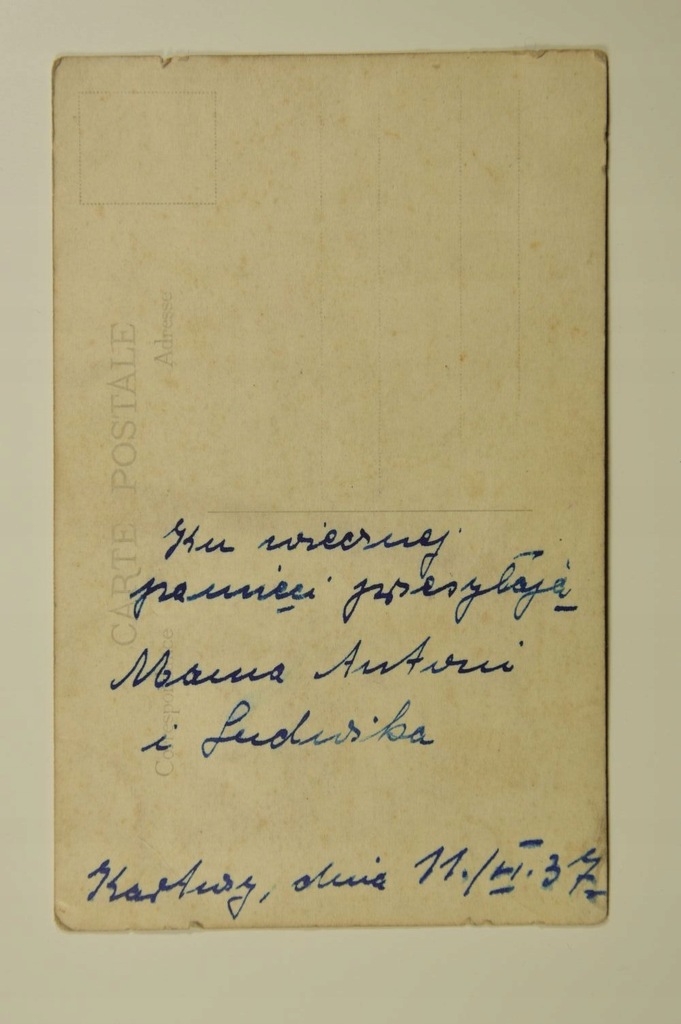 CARTE POSTALE
Adresse
Ku wiecznej
pamięci przesyłają
Mama Antoni
i Ludwika
Kartuzy, dnia 11./VI.37